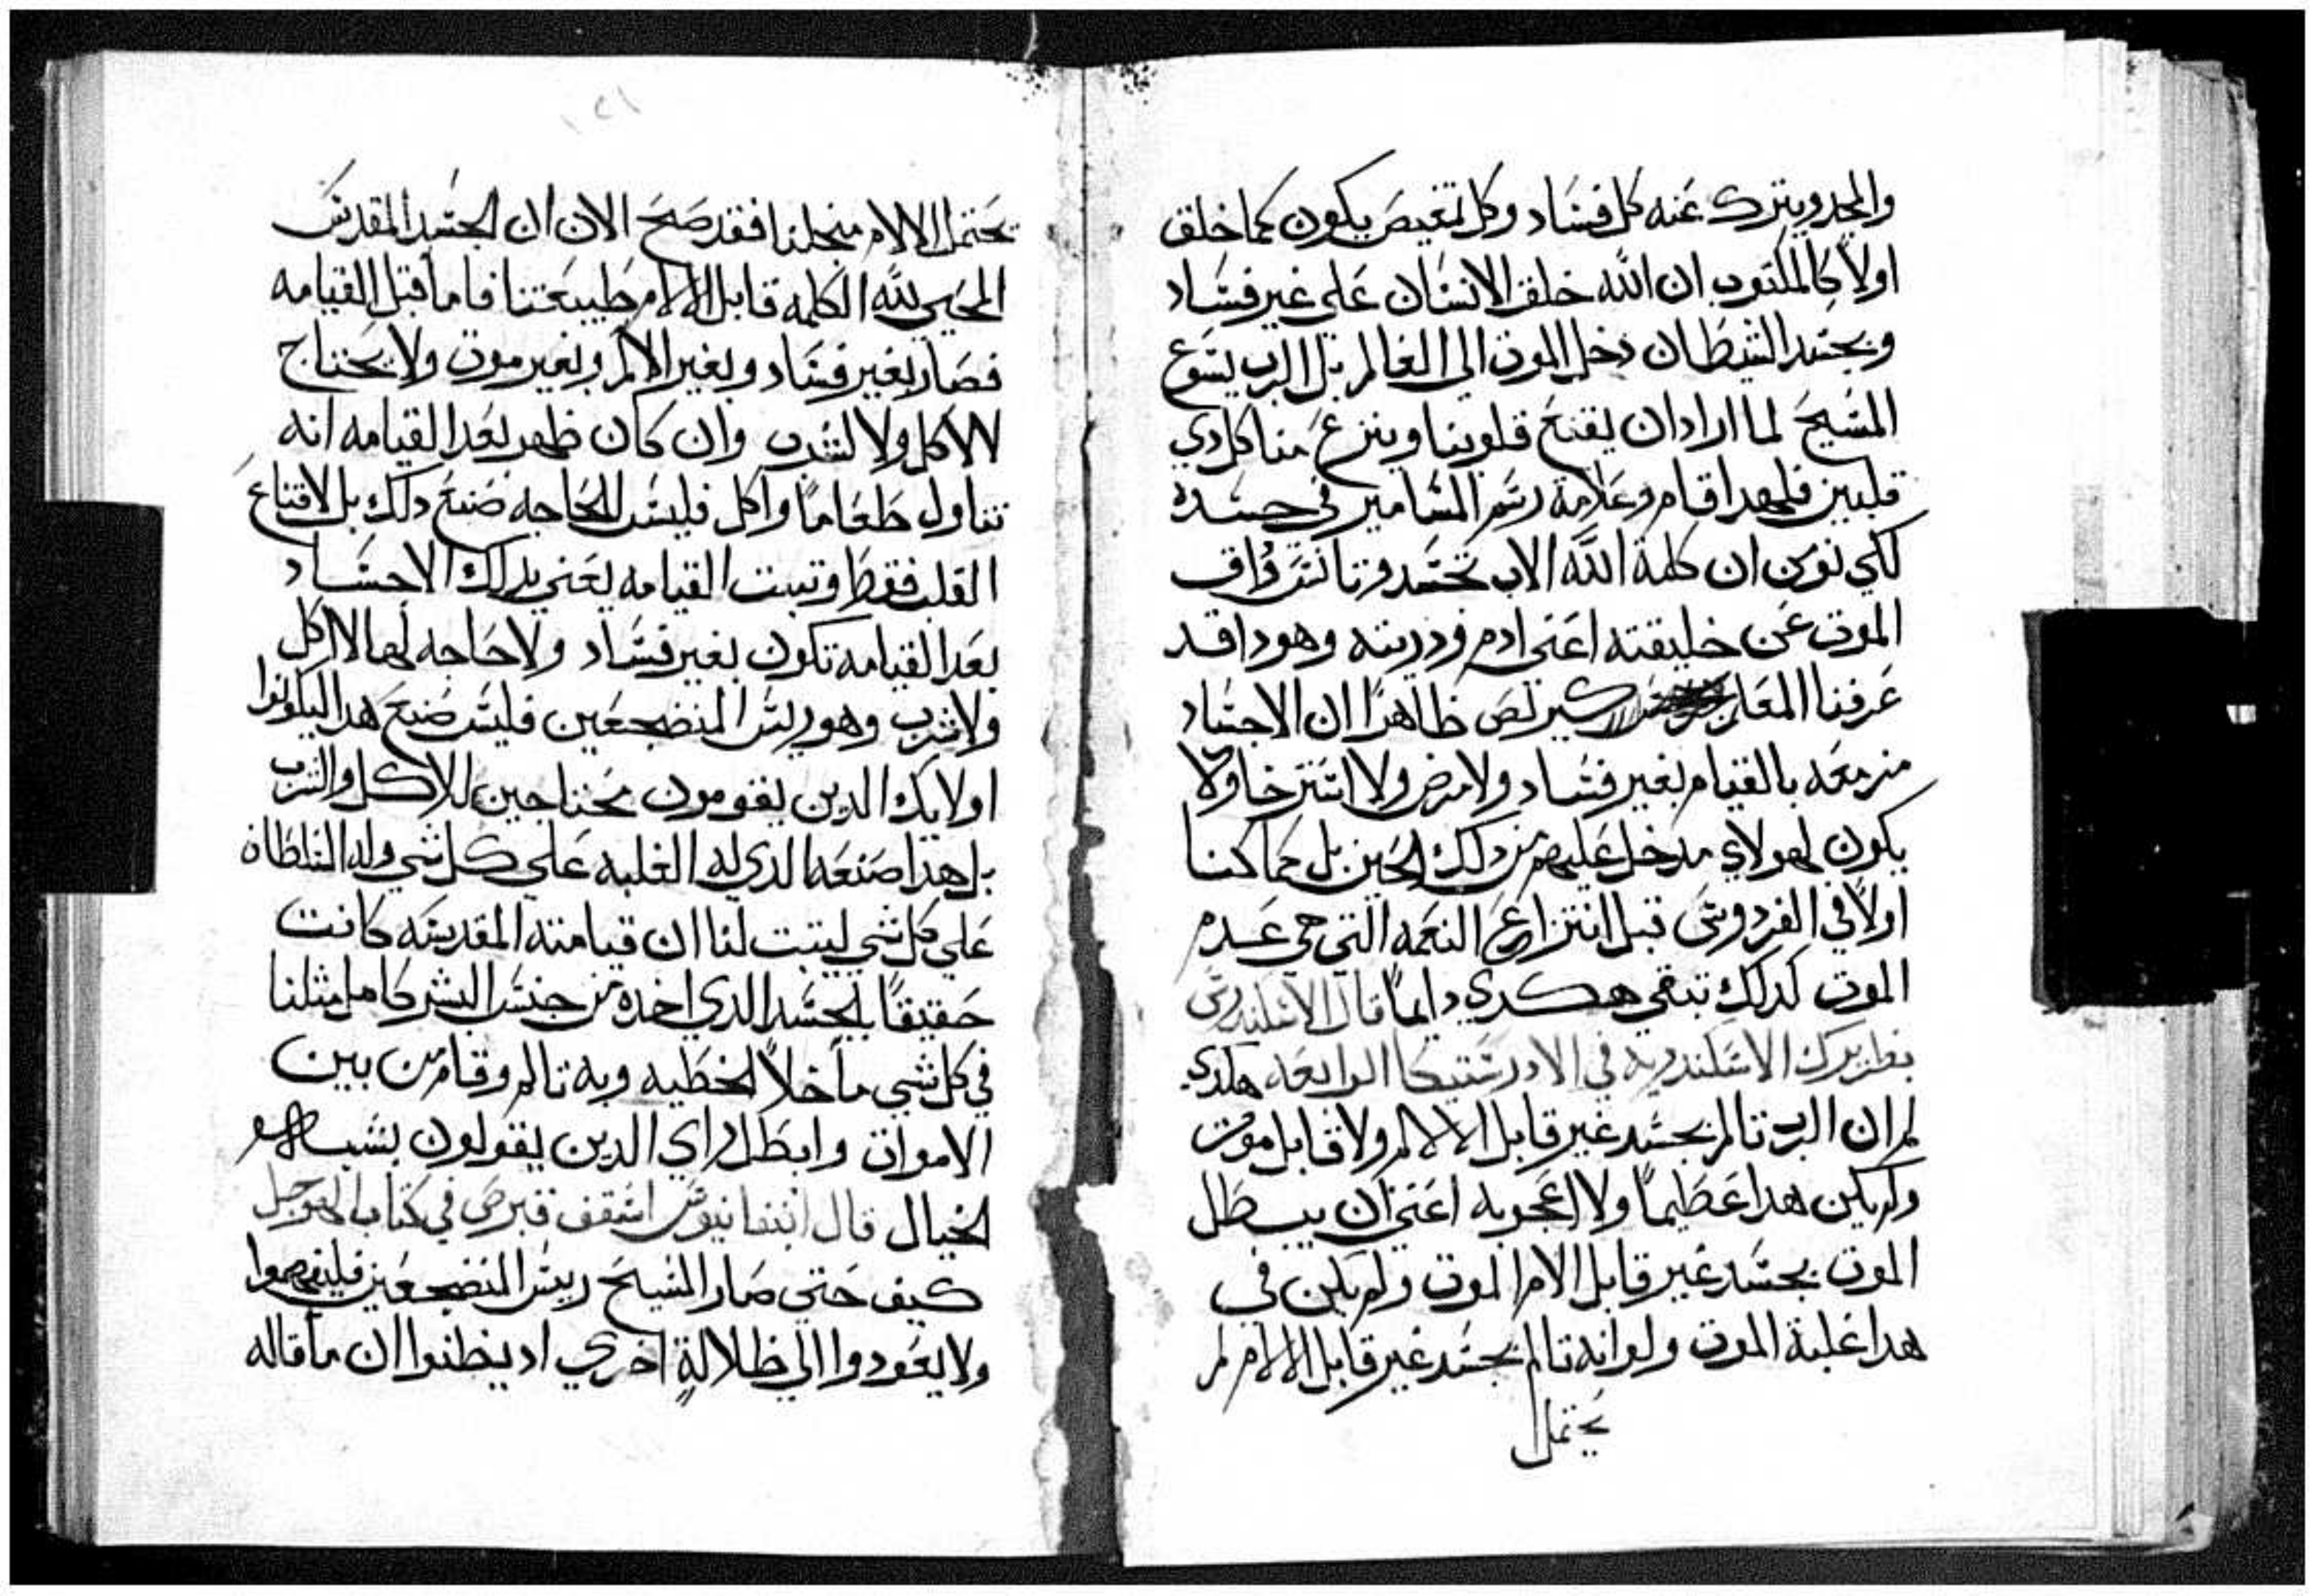 والمجد ويترك عنه كل فساد وكل تغيص يكون كما خلق
اولاً كالمكتوب ان الله خلق الانسان على غير فساد
وبحسد الشيطان دخل الموت الى العالم بل الرب يسوع
المسيح لما اراد ان يقنع قلوبنا وينزع منا كل دي
قلبين فلهدا قام وعلامة رسم المسامير في جسده
لكي نومن ان كلمة الله الاب تجسد
الموت عن خليقته اعني ادم ودريته وهودا قد
عرفنا المعار ظاهرًا ان الاجساد
مزمعه بالقيام بغير فساد ولا مرض ولا استرخا ولا
يكون لهولاي مدخل عليهم من دلك الحين بل كما كنا
اولاً في الفردوس قبل انتزاع النعمه التي هي عدم
الموت كدلك تبقى هكدي دايمًا قال
بطريرك الاسكندريه في الارطستيكا الرابعه هكدي
لم ان الرب تالم بجسد غير قابل الالام ولا قابل موت
ولم يكن هدا عظيمًا ولا اعجوبه اعني ان يبطل
الموت بجسد غير قابل الالام الموت ولم يكن في
هدا غلبة الموت ولو انه تالم بجسد غير قابل الالام لم
يحتمل
١٢١
يحتمل الالام من اجلنا فقد صح الان ان الجسد المقدس
المحيي لله الكلمه قابل الالام طبيعتنا فاما قبل القيامه
فصار بغير فساد وبغير الالم وبغير موت ولا يحتاج
لاكل ولا لشرب وان كان ظهر بعد القيامه انه
تناول طعامًا واكل فليس للحاجه صنع دلك بل لاقناع
القلب فقط وتبت القيامه يعني بدلك الاجساد
بعد القيامه تكون بغير فساد ولا حاجه لها لاكل
ولا شرب وهو ريس المنضجعين فليس صنع هدا ليكونوا
اوليك الدين يقومون محتاجين للاكل والشرب
بل هدا صنعه الدي له الغلبه على كل شي وله السلطان
على كل شي ليتبت لنا ان قيامته المقدسه كانت
حقيقًا بالجسد الدي اخده من جنس البشر كاملا مثلنا
في كل شي ما خلا الخطيه وبه تالم وقام من بين
الاموات وابطل راي الدين يقولون بشبه
الخيال قال ابيفانيوس اسقف قبرص في كتاب الهوجل
كيف حتي صار المسيح ريس المنضجعين فليفهموا
ولا يعودوا الي ظلالةٍ اخري اد يظنوا ان ما قاله